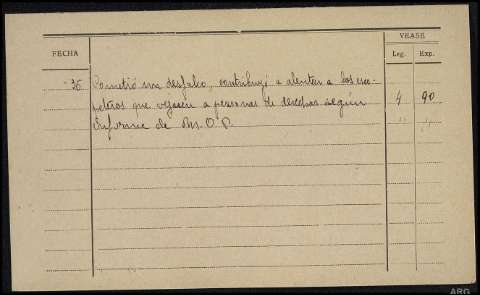 VEASE
FECHA
Leg. Exp.
-36 Cometió un desfalco, contribuyó a alentar a los esco-
peteros que vejasen a personas de derechas según 4 90
informe de Ms. O. P. " "
ARG